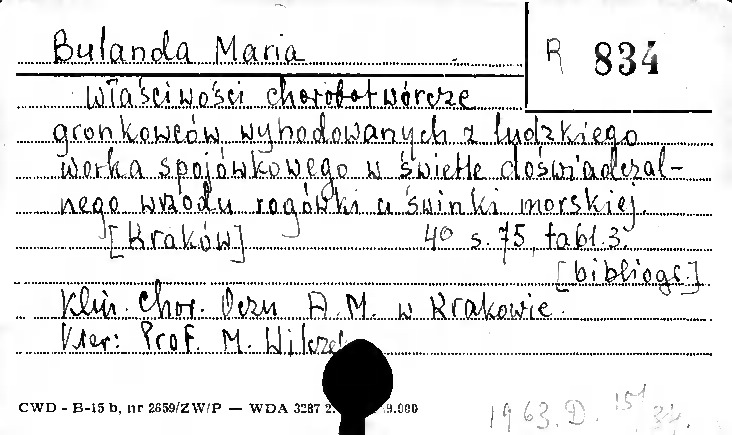 Bulanda Maria
R 834
Właściwości chorobotwórcze
gronkowców wyhodowanych z ludzkiego
worka spojówkowego w świetle doświadczal-
nego wrzodu rogówki u świnki morskiej.
[Kraków] 4° s. 75, tabl. 3.
[bibliogr.]
Klin. Chor. Oczu A.M. w Krakowie.
Kier: Prof. M.
CWD - B-15 b, nr 2659/ZW/P — WDA 3287 2.
1963.D.